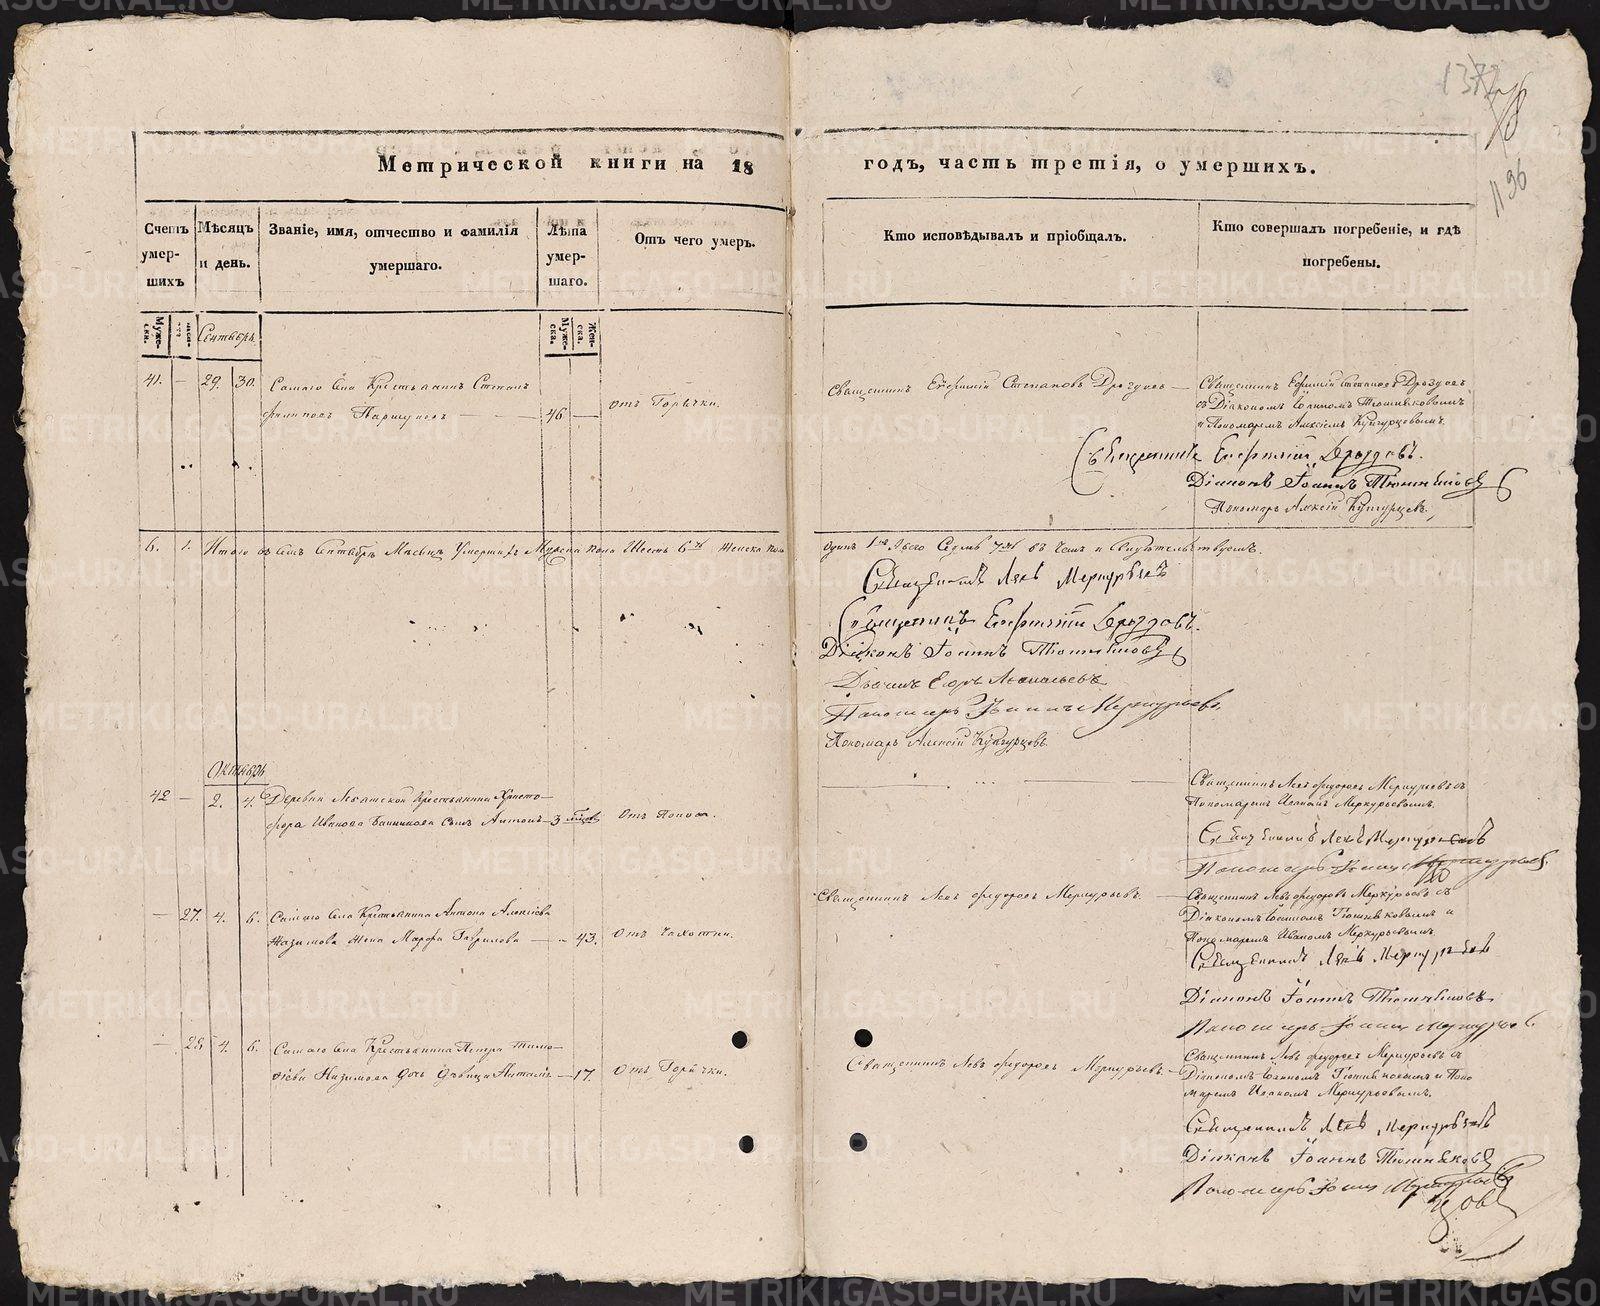 Метрической книги на 18 годъ, часть третія, о умершихъ.
Счетъ умер-шихъ
Мѣсяцъ и день.
Званіе, имя, отчество и фамилія умершаго.
Лѣта умер-шаго.
Отъ чего умеръ.
Кто исповѣдывалъ и пріобщалъ.
Кто совершалъ погребеніе, и гдѣ погребены.
Муже-ск.
Сентябрь
Муже-ска.
Жен-ска.
41. — 29. 30. Самаго Села Крестьянинъ Степанъ
46 —
отъ Горячки.
Священникъ Евфимій Степановъ Дроздовъ —
Священникъ Евфимій Степановъ Дроздовъ
съ Діакономъ Іоанномъ
и Пономаремъ Алексіемъ Кунгурцовымъ.
Священникъ Евфимій Дроздовъ.
Діаконъ Іоаннъ
Пономарь Алексій Кунгурцевъ.
6. 1. Итого въ Сентябрѣ Мѣсяцѣ Умершихъ Мужеска пола Шесть 6ть Женска пола одинъ Всего Седмь 7мь въ чемъ и Свидѣтельствуемъ.
Священникъ Левъ Меркурьевъ
Священникъ Евфимій Дроздовъ.
Діаконъ Іоаннъ
Дьячекъ Егоръ
Пономарь Іоаннъ Меркурьевъ.
Пономарь Алексій Кунгурцовъ.
Октябрь
42 — 2. 4. Деревни Крестьянина Христо-
фора Иванова сынъ Антонъ — 3 мѣсяц.
Отъ Поноса.
Священникъ Левъ Федоровъ Меркурьевъ съ
Пономаремъ Иваномъ Меркурьевымъ.
Священникъ Левъ Меркурьевъ
Пономарь Іоаннъ Меркурьевъ.
— 27. 4. 6. Самаго Села Крестьянина Антона Алексіева
жена Марфа Гаврилова — 43.
отъ Чахотки.
Священникъ Левъ Федоровъ Меркурьевъ. —
Священникъ Левъ Федоровъ Меркурьевъ съ
Діакономъ Іоанномъ и
Пономаремъ Иваномъ Меркурьевымъ.
Священникъ Левъ Меркурьевъ
Діаконъ Іоаннъ
Пономарь Іоаннъ Меркурьевъ.
— 28. 4. 6. Самаго Села Крестьянина Петра Тимо-
ѳеева дочь дѣвица — 17.
отъ Горячки.
Священникъ Левъ Федоровъ Меркурьевъ. —
Священникъ Левъ Федоровъ Меркурьевъ съ
Діакономъ Іоанномъ и Поно
маремъ Иваномъ Меркурьевымъ.
Священникъ Левъ Меркурьевъ
Діаконъ Іоаннъ
Пономарь Іоаннъ Меркурьевъ
METRIKI.GASO-URAL.RU